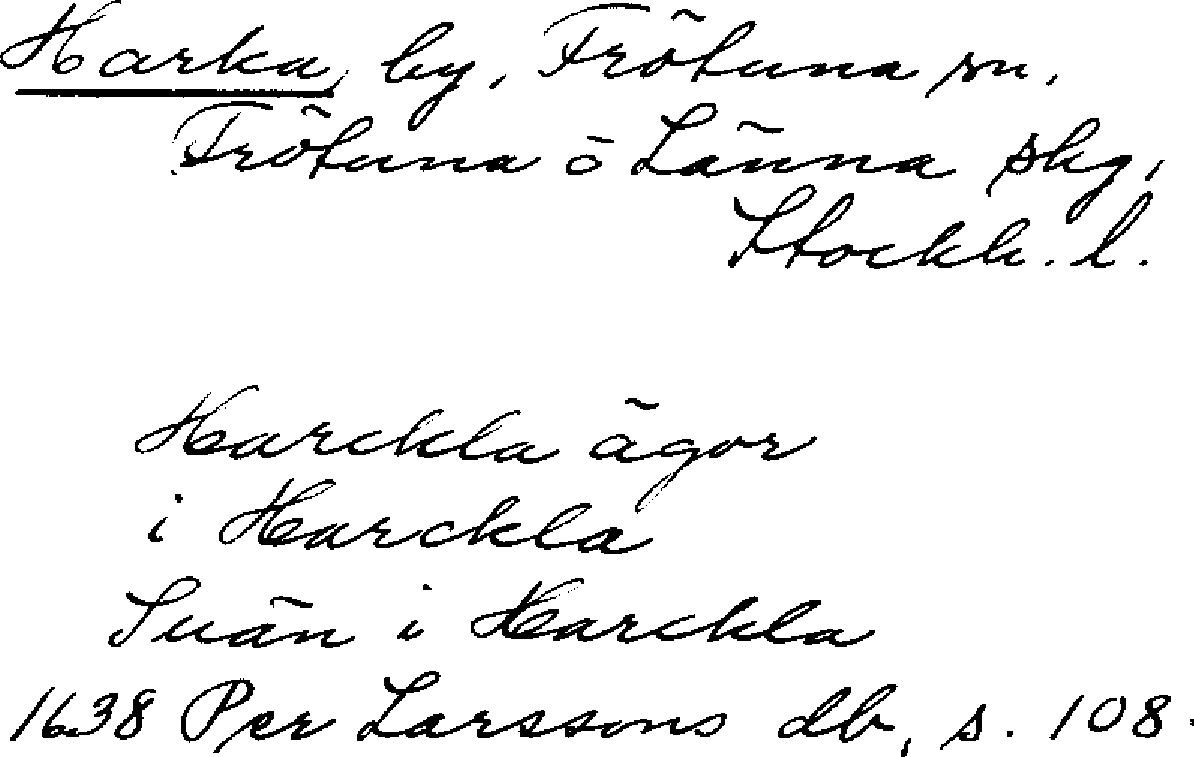 Harka, by, Frötuna sn,
Frötuna o Länna skg,
Stockh. l.
Harckla ägor
i Harckla
Suän i Harckla
1638 Per Larssons db, s. 108.